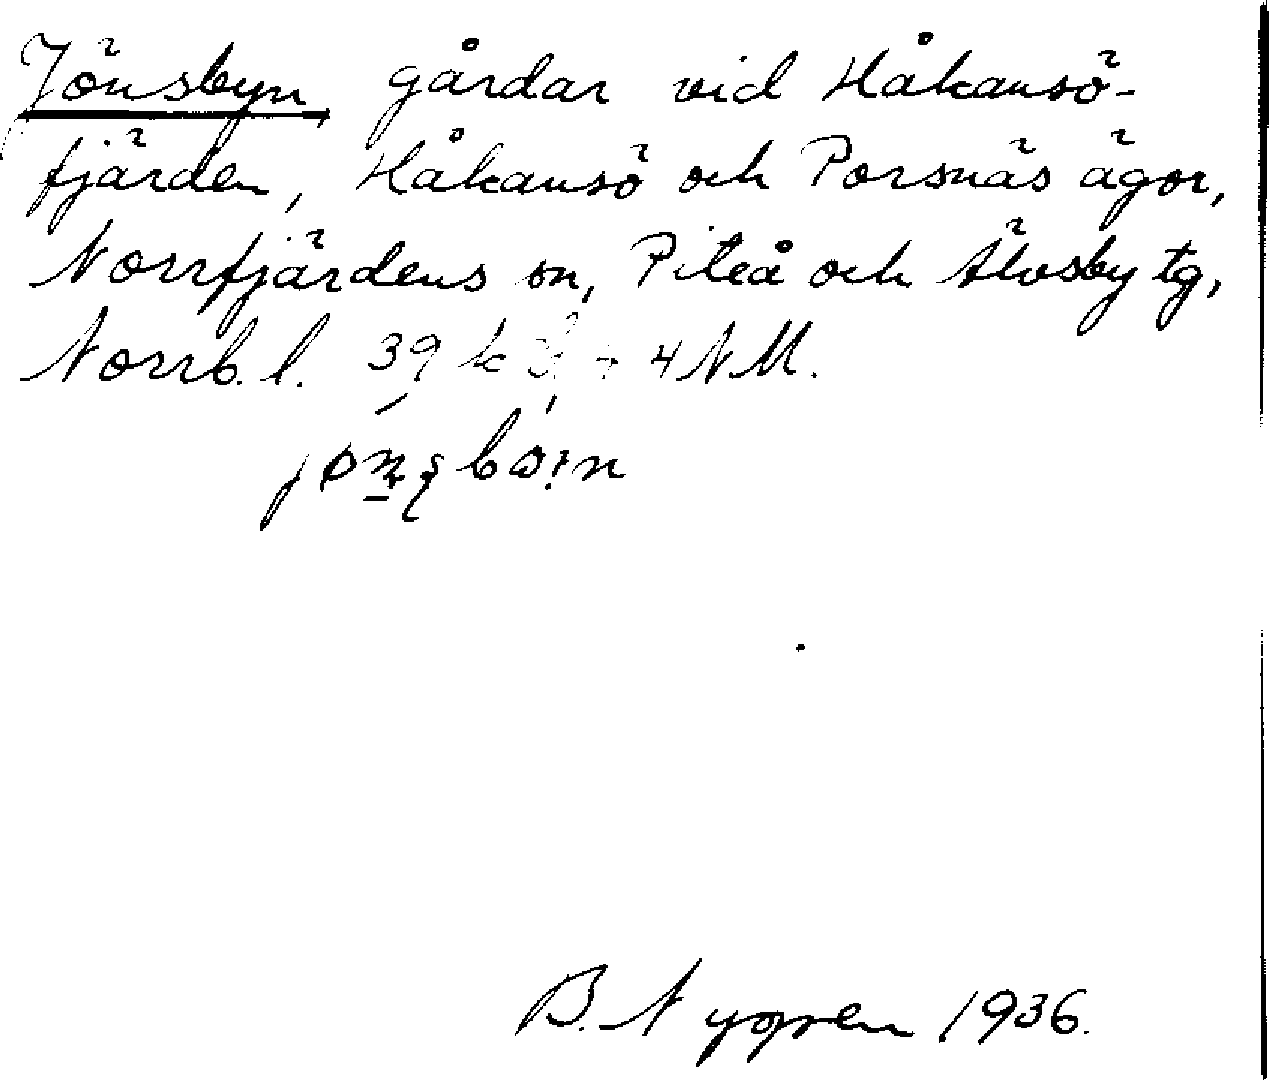 Jönsbyn gårdar vid Håkansö-
fjärden, Håkansö och Porsnäs ägor,
Norrfjärdens sn, Piteå och Älvsby tg,
Norrb. l. 39 k 4 NM.
B. Nygren 1936.